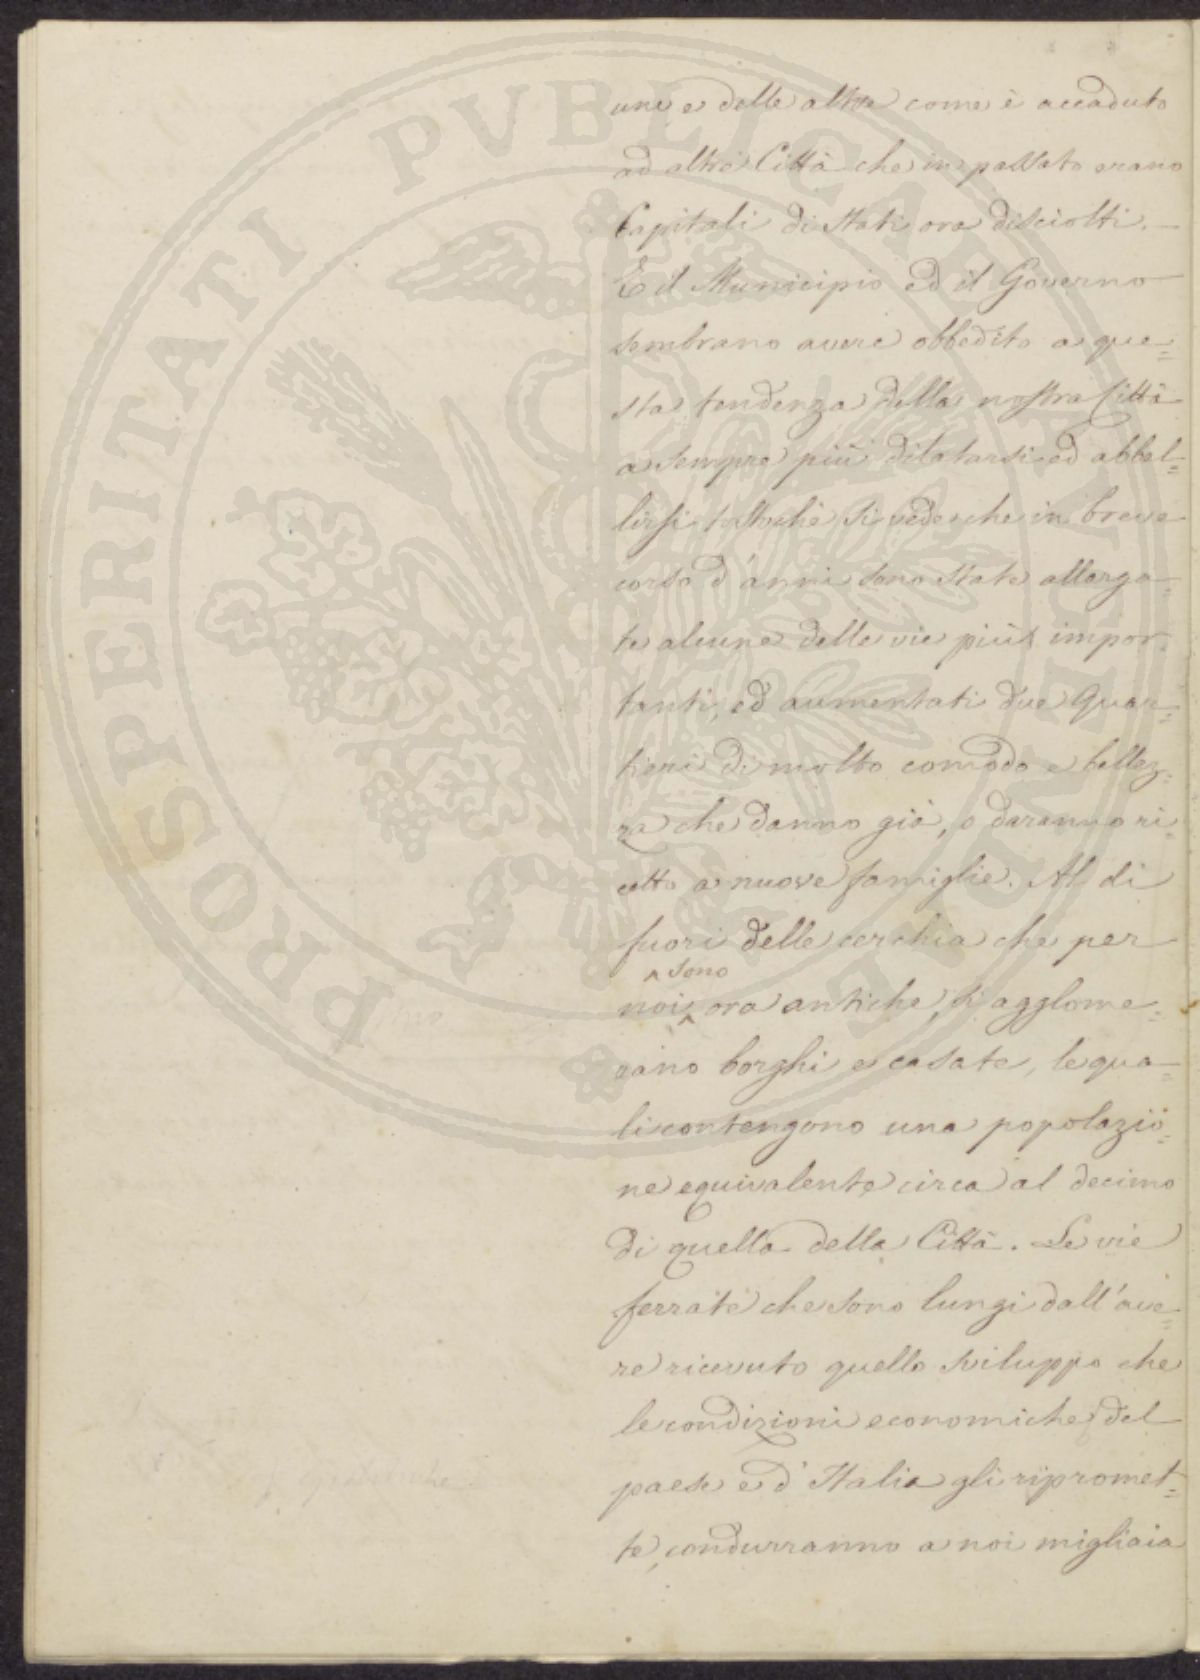 une e delle altre come è accaduto
ad altre Città che in passato erano
Capitali di Stati ora disciolti. —
E il Municipio ed il Governo
sembrano avere obbedito a que=
sta tendenza della nostra Città
a sempre più dilatarsi ed abbel=
lirsi tostochè si vede che in breve
corso d'anni sono state allarga-
te alcune delle vie più impor=
tanti, ed aumentati due Quar=
tieri di molto comodo e bellez=
za che danno già, o daranno ri=
cetto a nuove famiglie. Al di
fuori delle cerchia che per
^ sono
noi ^ ora antiche, si agglome=
rano borghi e casate, le qua=
li contengono una popolazio=
ne equivalente circa al decimo
di quella della Città. Le vie
ferrate che sono lungi dall'ave=
re ricevuto quello sviluppo che
le condizioni economiche del
paese e d'Italia gli ripromet=
te, condurranno a noi migliaia
PROSPERITATI PVBLICAE AVGENDAE